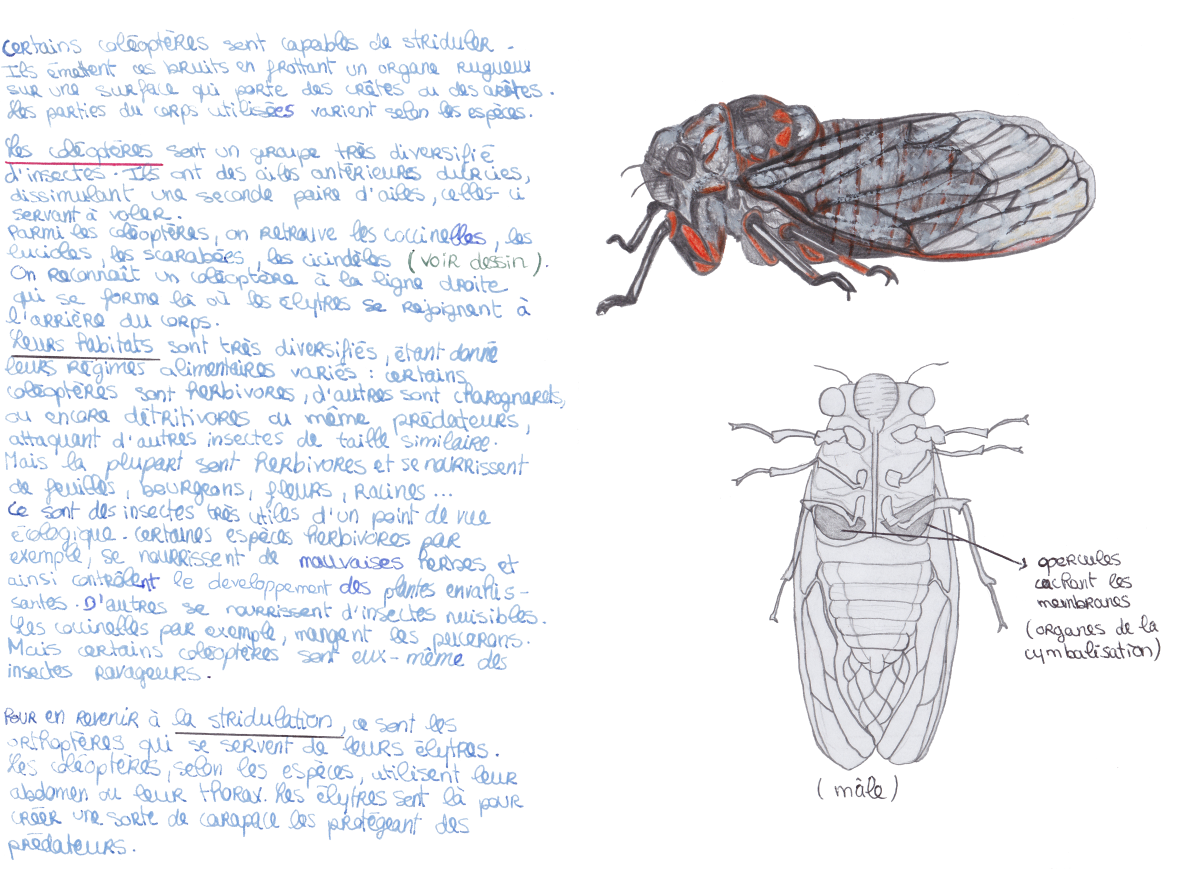 Certains coléoptères sont capables de striduler.
Ils émettent ces bruits en frottant un organe rugueux
sur une surface qui porte des crêtes ou des arêtes.
Les parties du corps utilisées varient selon les espèces.
Les coléoptères sont un groupe très diversifié
d'insectes. Ils ont des ailes antérieures durcies,
dissimulant une seconde paire d'ailes, celles-ci
servant à voler.
Parmi les coléoptères, on retrouve les coccinelles, les
lucioles, les scarabées, les cicindèles (voir dessin).
On reconnaît un coléoptère à la ligne droite
qui se forme là où les élytres se rejoignent à
l'arrière du corps.
Leurs habitats sont très diversifiés, étant donné
leurs régimes alimentaires variés : certains
coléoptères sont herbivores, d'autres sont charognards,
ou encore détritivores ou même prédateurs,
attaquant d'autres insectes de taille similaire.
Mais la plupart sont herbivores et se nourrissent
de feuilles, bourgeons, fleurs, racines...
Ce sont des insectes très utiles d'un point de vue
écologique. Certaines espèces herbivores par
exemple, se nourrissent de mauvaises herbes et
ainsi contrôlent le developpement des plantes envahis-
santes. D'autres se nourrissent d'insectes nuisibles.
Les coccinelles par exemple, mangent les pucerons.
Mais certains coléoptères sont eux-même des
insectes ravageurs.
Pour en revenir à la stridulation, ce sont les
orthoptères qui se servent de leurs élytres.
Les coléoptères, selon les espèces, utilisent leur
abdomen ou leur thorax. Les élytres sont là pour
créer une sorte de carapace les protégeant des
prédateurs.
opercules
cachant les
membranes
(organes de la
cymbalisation)
(mâle)